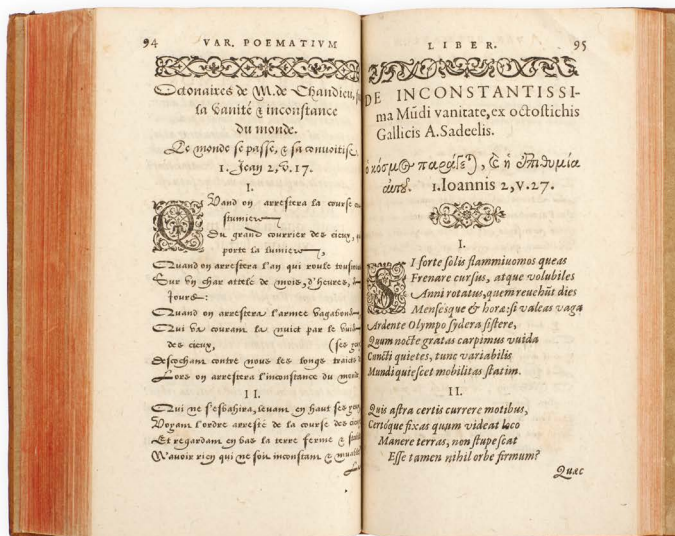 94 VAR. POEMATIVM
Octonaires de M. de Chandieu,
la vanité & inconstance
du monde.
Le monde se passe, & sa convoitise.
1. Jean 2, v. 17.
I.
QVand on arrestera la course
Du grand courrier des cieux,
porte la lumiere,
Quand on arrestera l'an qui roule
Sur vn char attelé de mois, d'heures,
Jours:
Quand on arrestera l'armee vagabonde
Qui va courant la nuict par le vuide
des cieux,
Descochant contre nous les longs traicts
Lors on arrestera l'inconstance du monde.
II.
Qui ne s'esbahira, levant en haut ses yeux,
Voyant l'ordre arresté de la course des
Et regardant en bas la terre ferme &
N'avoir rien qui ne soit inconstant &
LIBER. 95
DE INCONSTANTISSI-
ma Mūdi vanitate, ex octostichis
Gallicis A. Sadeelis.
ὁ κόσμος παράγεται, καὶ ἡ ἐπιθυμία
αὐτοῦ. 1. Ioannis 2, v. 27.
I.
SI forte solis flammiuomos queas
Frenare cursus, atque volubiles
Anni rotatus, quem reuehūt dies
Mensesque & horæ: si valeas vaga
Ardente Olympo sydera sistere,
Quum nocte gratas carpimus vuida
Cuncti quietes, tunc variabilis
Mundi quiescet mobilitas statim.
II.
Quis astra certis currere motibus,
Certóque fixas quum videat loco
Manere terras, non stupescat
Esse tamen nihil orbe firmum?
Quæc